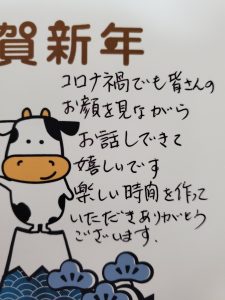 賀新年
コロナ禍でも皆さんの
お顔を見ながら
お話しできて
嬉しいです
楽しい時間を作って
いただきありがとう
ございます.